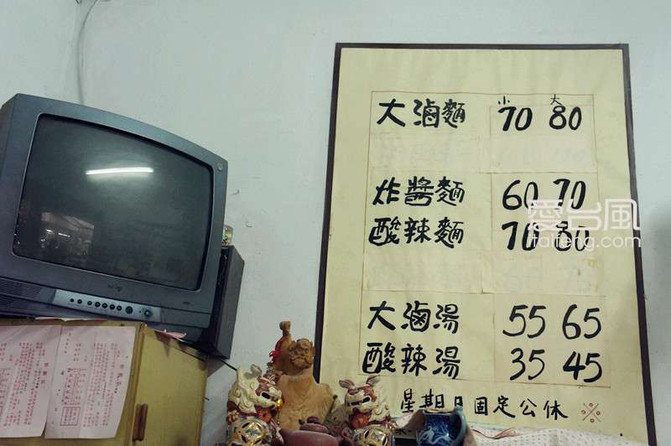 小 大
大滷麵 70 80
炸醬麵 60 70
酸辣麵 70 80
大滷湯 55 65
酸辣湯 35 45
星期日固定公休 ※
愛台風
taifeng.com